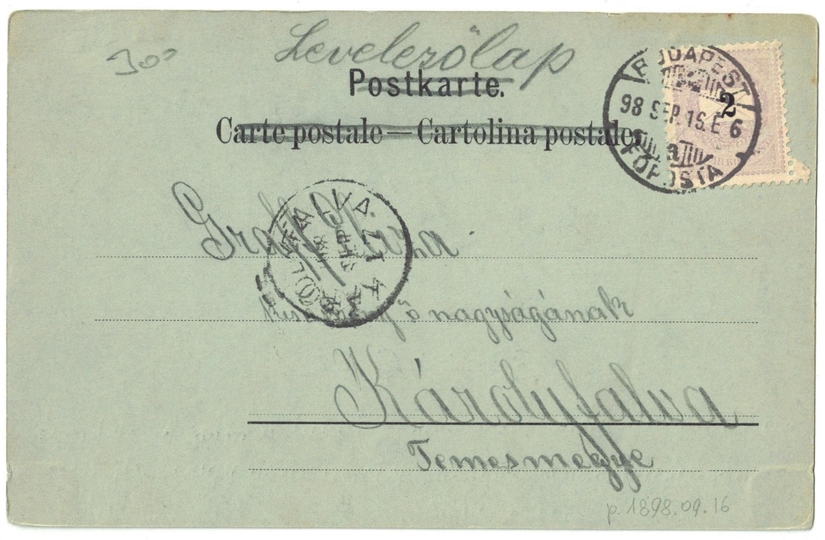 300
Levelezőlap
Postkarte.
Carte postale — Cartolina postale
BUDAPEST
98 SEP. 16. E 6
FŐPOSTA
2
Graff
KÁROLYFALVA
ő nagyságának
Károlyfalva
Temesmegye
p. 1898.09.16